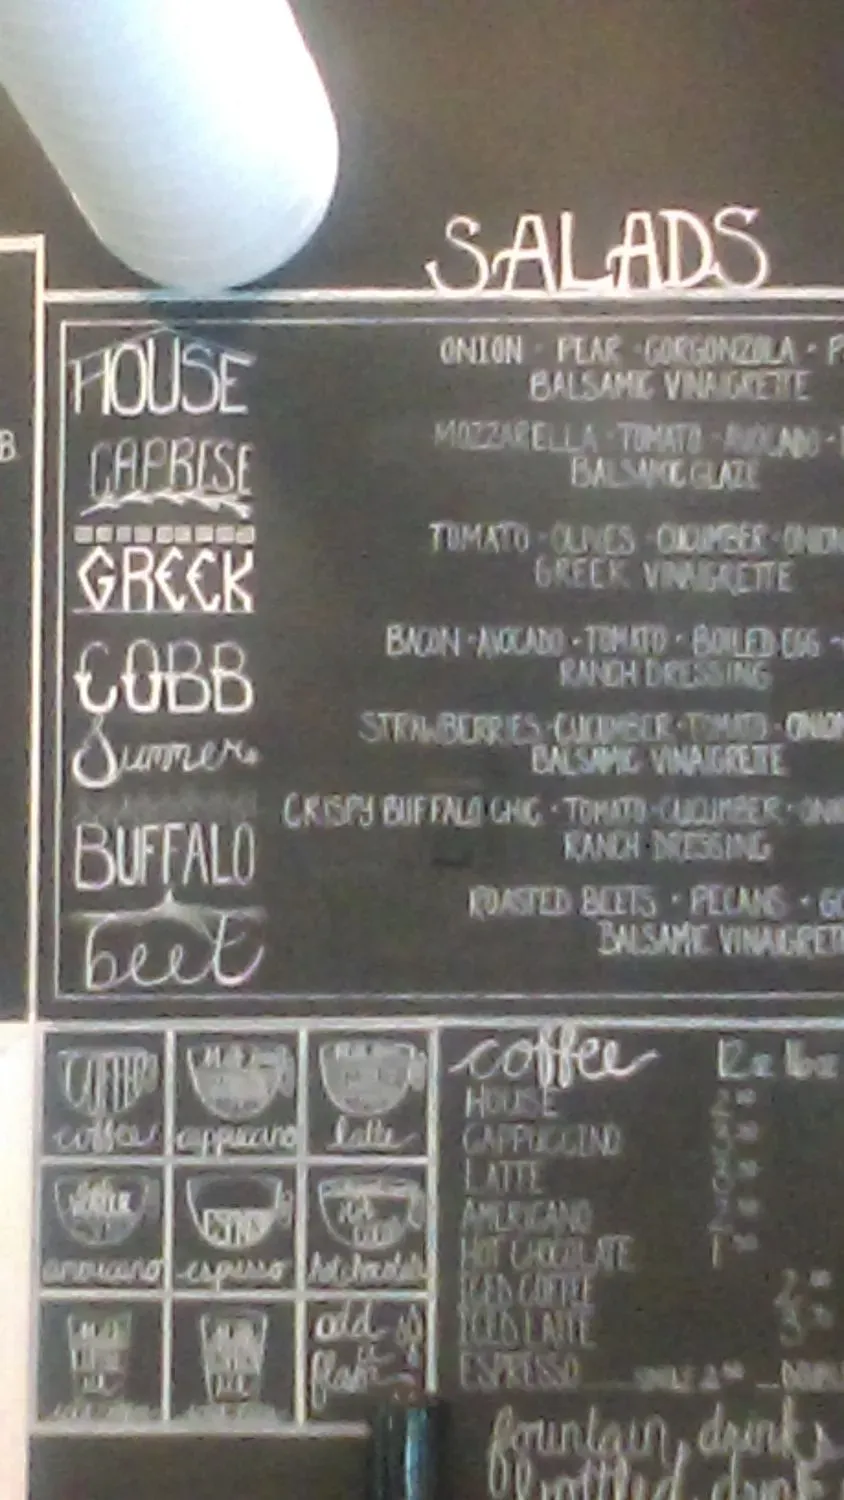 SALADS
HOUSE
ONION · PEAR · GORGONZOLA · P
BALSAMIC VINAIGRETTE
CAPRESE
MOZZARELLA · TOMATO · AVOCADO ·
BALSAMIC GLAZE
GREEK
TOMATO · OLIVES · CUCUMBER · ONION
GREEK VINAIGRETTE
COBB
BACON · AVOCADO · TOMATO · BOILED EGG ·
RANCH DRESSING
Summer
STRAWBERRIES · CUCUMBER · TOMATO · ONION
BALSAMIC VINAIGRETTE
BUFFALO
CRISPY BUFFALO CHIC · TOMATO · CUCUMBER · ONI
RANCH DRESSING
beet
ROASTED BEETS · PECANS · GO
BALSAMIC VINAIGRETT
B
COFFEE
coffee
cappuccino
latte
americano
ESPRESSO
espresso
hot chocolate
add
coffee 12oz 16oz
HOUSE
CAPPUCCINO
LATTE
AMERICANO
HOT CHOCOLATE
ICED COFFEE
ICED LATTE
ESPRESSO
fountain drinks
bottled drink